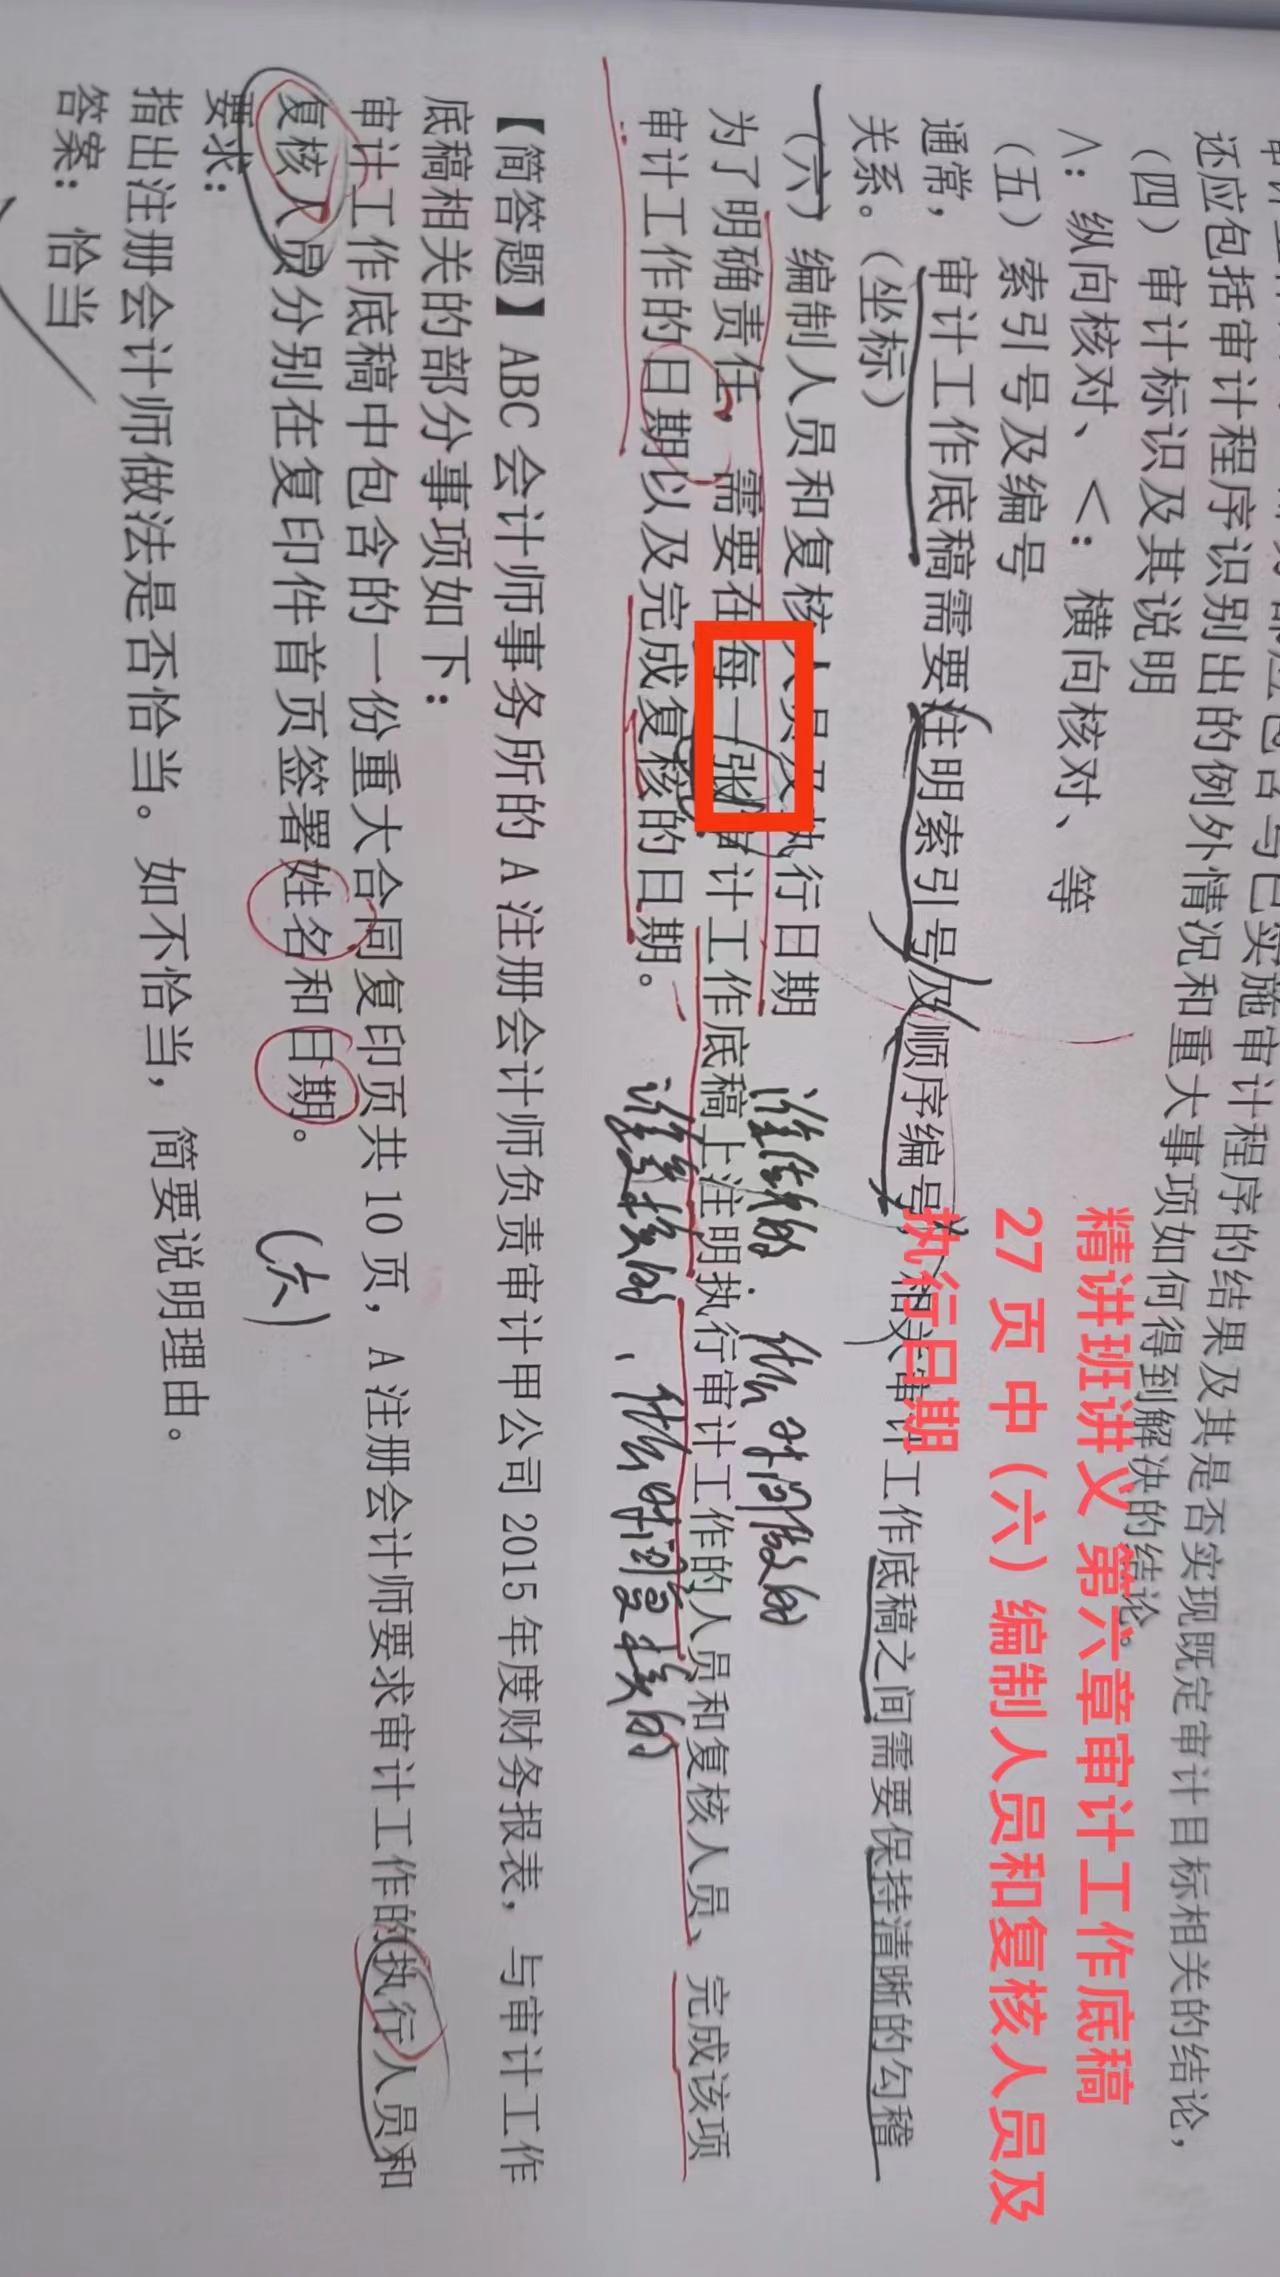 还应包括审计程序识别出的例外情况和重大事项如何得到解决的结论。
（四）审计标识及其说明
∧：纵向核对、＜：横向核对、等
（五）索引号及编号
通常，审计工作底稿需要注明索引号及顺序编号，相关审计工作底稿之间需要保持清晰的勾稽
关系。（坐标）
精讲班讲义 第六章审计工作底稿
27 页 中（六）编制人员和复核人员及
执行日期
（六）编制人员和复核人员及执行日期
谁做的 什么时间做的
为了明确责任，需要在每一张审计工作底稿上注明执行审计工作的人员和复核人员、完成该项
审计工作的日期以及完成复核的日期。
谁复核的、什么时间复核的
【简答题】ABC 会计师事务所的 A 注册会计师负责审计甲公司 2015 年度财务报表，与审计工作
底稿相关的部分事项如下：
审计工作底稿中包含的一份重大合同复印页共 10 页，A 注册会计师要求审计工作的执行人员和
复核人员分别在复印件首页签署姓名和日期。（六）
要求：
指出注册会计师做法是否恰当。如不恰当，简要说明理由。
答案：恰当